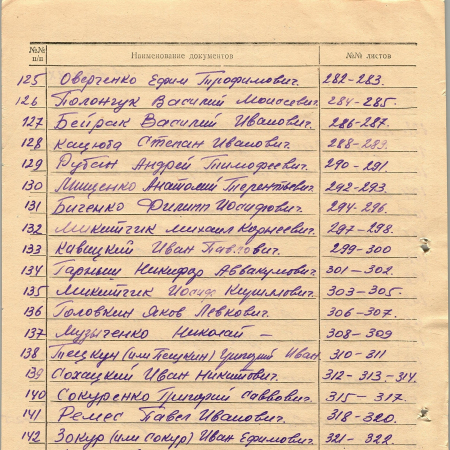 №№ п/п Наименование документов №№ листов
125 Оверченко Ефим Трофимович. 282-283.
126 Полончук Василий Моисеевич. 284-285.
127 Бейрак Василий Иванович. 286-287.
128 Кацюба Степан Иванович. 288-293.
129 Дубан Андрей Тимофеевич. 290-291.
130 Мищенко Анатолий Терентьевич. 292-293.
131 Биченко Филипп Иосифович. 294-296.
132 Микитчик Михаил Корнеевич. 297-298.
133 Кивацкий Иван Павлович. 299-300
134 Гаркуши Никифор Аввакумович. 301-302.
135 Микитчик Кириллович. 303-305.
136 Головкин Яков Левкович. 306-307.
137 Музыченко Николай — 308-309
138 Тешкун (или Пешкин) Григорий Иван. 310-311
139 Сохацкий Иван Никитович. 312-313-314.
140 Сокуренко Григорий Саввович. 315-317.
141 Ремес Павел Иванович. 318-320.
142 Зокур (или Сокур) Иван Ефимович. 321-322.